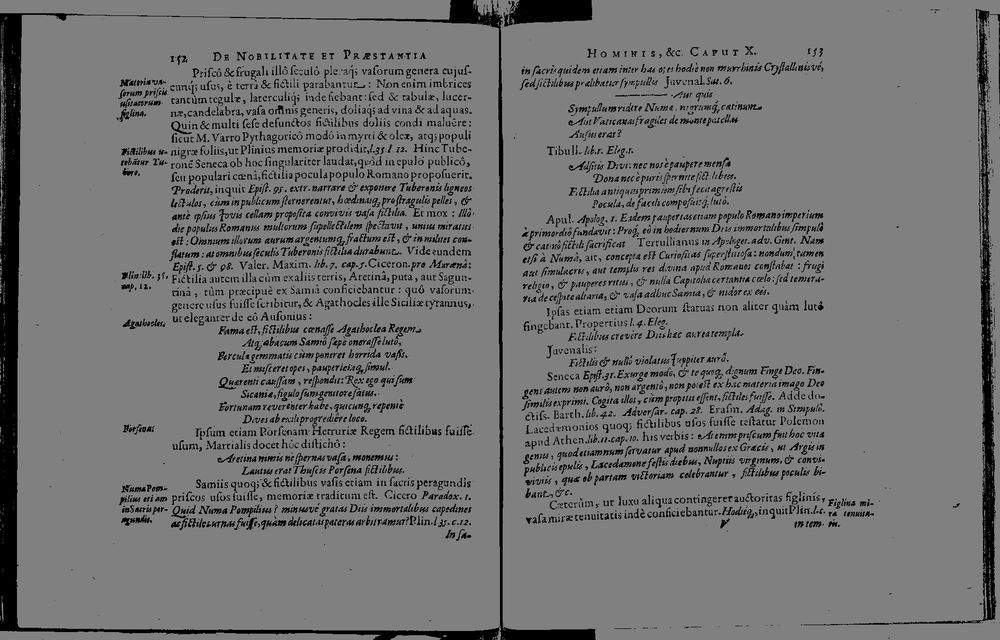 152 DE NOBILITATE ET PRÆSTANTIA
Priscô & frugali illô seculô pleraq; vasorum genera cujus-
cunq; usus, è terra & fictili parabantur: Non enim imbrices
tantùm tegulæ, laterculiq; inde fiebant: sed & tabulæ, lucer-
næ, candelabra, vasa omnis generis, doliaq; ad vina & ad aquas.
Quin & multi sese defunctos fictilibus doliis condi maluêre:
sicut M. Varro Pythagoricô modô in myrti & oleæ, atq; populi
nigræ foliis, ut Plinius memoriæ prodidit, l. 35. l. 12. Hinc Tube-
ronẽ Seneca ob hoc singulariter laudat, quòd in epulô publicô,
seu populari cœnâ, fictilia pocula populo Romano proposuerit.
Proderit, inquit Epist. 95. extr. narrare & exponere Tuberonis ligneos
lectulos, cùm in publicum sternerentur, hædinasq; pro stragulis pelles, &
antè ipsius Jovis cellam proposita convivis vasa fictilia. Et mox: Illô
die populus Romanus multorum supellectilem spectavit, unius miratus
est: Omnium illorum aurum argentumq; fractum est, & in milites con-
flatum: at omnibus seculis Tuberonis fictilia durabunt. Vide eundem
Epist. 5. & 98. Valer. Maxim. lib. 7. cap. 5. Ciceron. pro Murænâ:
Fictilia autem illa cùm ex aliis terris, Aretinâ, puta, aut Sagun-
tinâ, tùm præcipuè ex Samiâ conficiebantur: quô vasorum
genere usus fuisse scribitur, & Agathocles ille Siciliæ tyrannus,
ut eleganter de eô Ausonius:
Fama est, fictilibus cœnasse Agathoclea Regem
Atq; abacum Samiô sæpè onerasse lutô,
Fercula gemmatis cùm poneret horrida vasis,
Et misceret opes, pauperiemq; simul.
Quærenti caussam, respondit: Rex ego qui sum
Sicaniæ, figulo sum genitore satus.
Fortunam reverenter habe, quicunq; repentè
Dives ab exili progrediêre loco.
Ipsum etiam Porsenam Hetruriæ Regem fictilibus fuisse
usum, Martialis docet hôc distichô:
Aretina nimis ne spernas vasa, monemus:
Lautus erat Thuscis Porsena fictilibus.
Samiis quoq; & fictilibus vasis etiam in sacris peragundis
priscos usos fuisse, memoriæ traditum est. Cicero Paradox. 1.
Quid Numa Pompilius? minusvé gratas Diis immortalibus capedines
ac fictiles urnas fuisse, quàm delicatas pateras arbitramur? Plin. l. 35. c. 12.
In sa-
Materia va-
sorum priscis
usitatorum
figlina.
Fictilibus u-
tebatur Tu-
bero.
Plin: lib. 35.
cap. 12.
Agathocles.
Porsena.
Numa Pom-
pilius etiam
in Sacris per-
agundis.
HOMINIS, &c. CAPUT X. 153
in sacris quidem etiam inter has opes hodiè non murrhinis Crystallinisvé,
sed fictilibus prælibatur sympullis. Juvenal. Sat. 6.
Aut quis
Sympullum ridere Numæ, nigrumq; catinum
Aut Vaticanas fragiles de monte patellas
Ausus erat?
Tibull. lib. 1. Eleg. 1.
Adsitis Divi: nec nos è paupere mensa
Dona nec è puris spernite fictilibus.
Fictilia antiquus primùm sibi fecit agrestis
Pocula, de facili composuitq; lutô.
Apul. Apolog. 1. Eadem paupertas etiam populo Romano imperium
à primordiô fundavit: Proq; eò in hodiernum Diis immortalibus simpulô
& catinô fictili sacrificat Tertullianus in Apologet. adv. Gent. Nam
etsi à Numâ, ait, concepta est Curiositas superstitiosa: nondum tamen
aut simulacris, aut templis res divina apud Romanos constabat: frugi
religio, & pauperes ritus, & nulla Capitolia certantia cœlo: sed temera-
ria de cespite altaria, & vasa adhuc Samia, & nidor ex eis.
Ipsas etiam etiam Deorum statuas non aliter quàm lutô
fingebant. Propertius l. 4. Eleg.
Fictilibus crevêre Diis hæc aurea templa.
Juvenalis:
Fictilis & nullô violatus Juppiter aurô.
Seneca Epist. 31. Exurge modò, & te quoq; dignum Finge Deo. Fin-
gens autem non aurô, non argentô, non potest ex hac materia imago Deo
similis exprimi. Cogita illos, cùm propitii essent, fictiles fuisse. Adde do-
ctiss. Barth. lib. 42. Adversar. cap. 28. Erasm. Adag. in Simpulô.
Lacedæmonios quoq; fictilibus usos fuisse testatur Polemon
apud Athen. lib. 11. cap. 10. his verbis: At enim priscum fuit hoc vita
genus, quod etiamnum servatur apud nonnullos ex Græcis, ut Argis in
publicis epulis, Lacedæmone festis diebus, Nuptiis virginum, & convi-
viis, quæ ob partam victoriam celebrantur, fictilibus poculis bi-
bant, &c.
Cæterùm, ut luxu aliqua contingeret auctoritas figlinis,
vasa miræ tenuitatis indè conficiebantur. Hodiéq; inquit Plin. l. c.
V in tem-
Figlina mi-
ra tenuita-
tis.